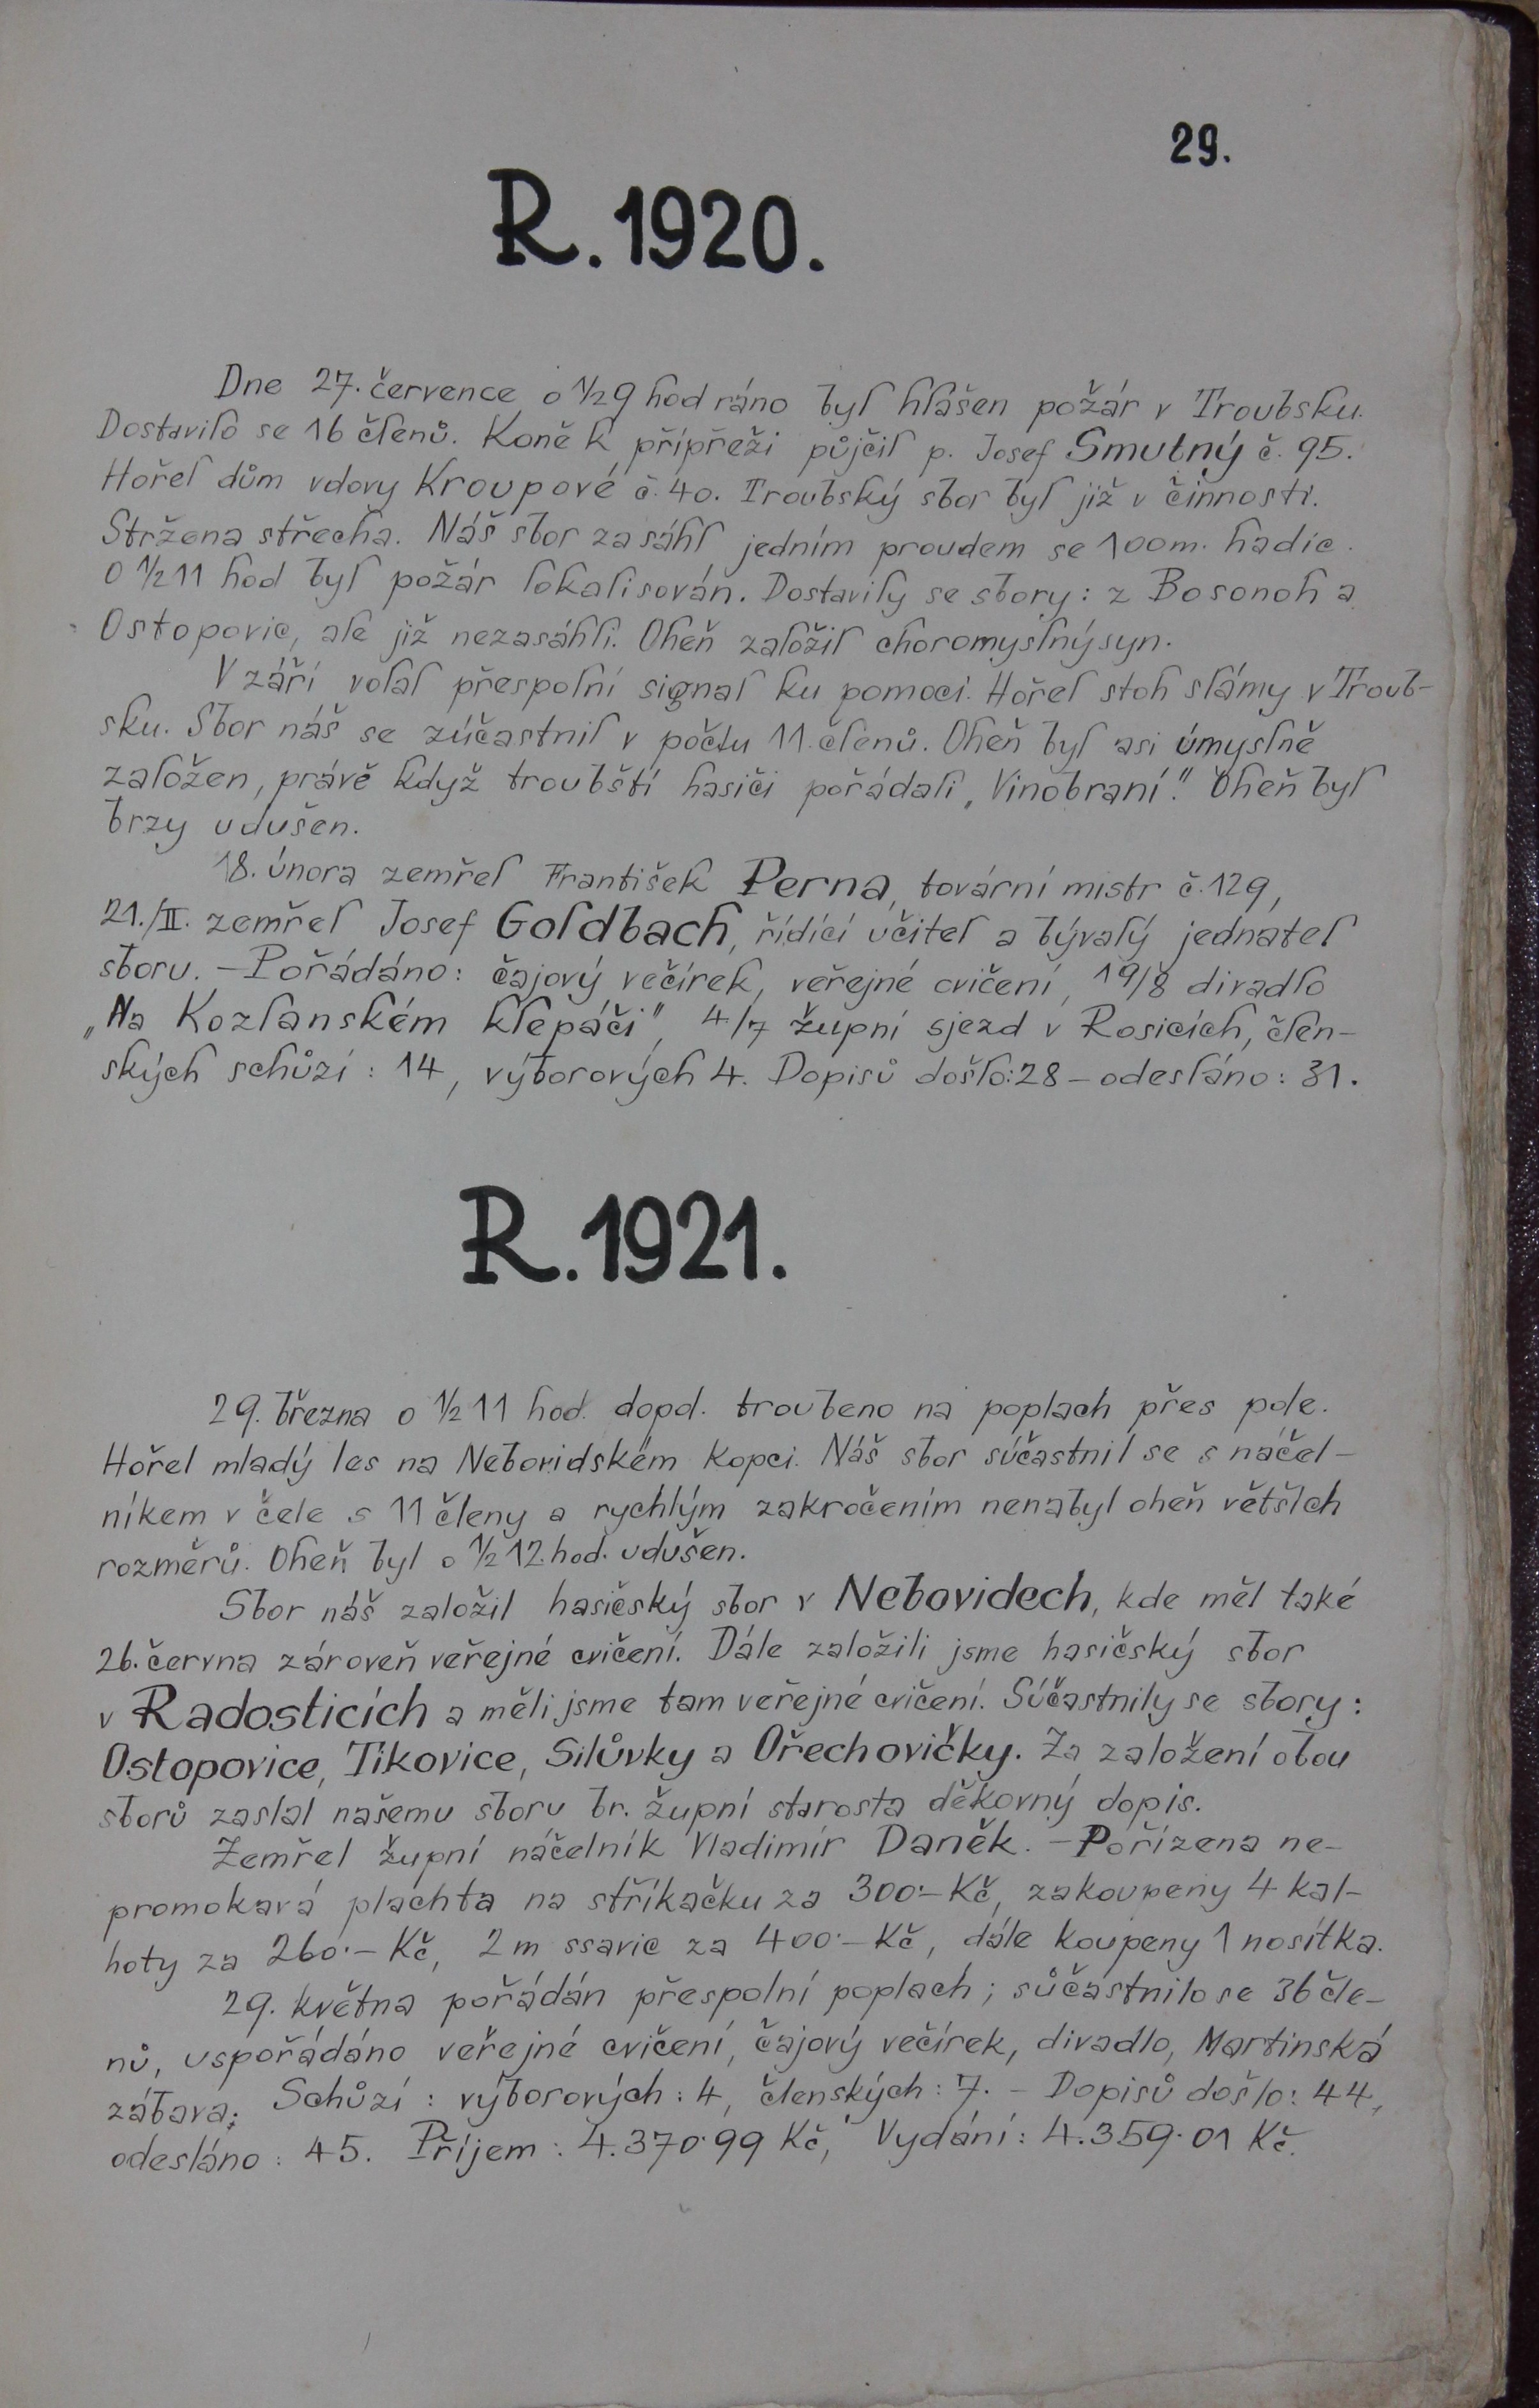 29.
R. 1920.
Dne 27. července o ½9 hod ráno byl hlášen požár v Troubsku.
Dostavilo se 16 členů. Koně k přípřeži půjčil p. Josef Smutný č. 95.
Hořel dům vdovy Kroupové č. 40. Troubský sbor byl již v činnosti.
Stržena střecha. Náš sbor zasáhl jedním proudem se 100m. hadic.
O ½11 hod byl požár lokalisován. Dostavily se sbory: z Bosonoh a
Ostopovic, ale již nezasáhli. Oheň založil choromyslný syn.
V září volal přespolní signal ku pomoci. Hořel stoh slámy v Troub-
sku. Sbor náš se zúčastnil v počtu 11 členů. Oheň byl asi úmyslně
založen, právě když troubští hasiči pořádali „Vinobraní." Oheň byl
brzy udušen.
18. února zemřel František Perna, tovární mistr č. 129,
21./II. zemřel Josef Goldbach, řídící učitel a bývalý jednatel
sboru. – Pořádáno: čajový večírek, veřejné cvičení, 19/8 divadlo
„Na Kozlanském klepáči", 4/7 župní sjezd v Rosicích, člen-
ských schůzí: 14, výborových 4. Dopisů došlo: 28 – odesláno: 31.
R. 1921.
29. března o ½11 hod. dopd. troubeno na poplach přes pole.
Hořel mladý les na Nebovidském kopci. Náš sbor súčastnil se s náčel-
níkem v čele s 11 členy a rychlým zakročením nenabyl oheň větších
rozměrů. Oheň byl o ½12. hod. udušen.
Sbor náš založil hasičský sbor v Nebovidech, kde měl také
26. června zároveň veřejné cvičení. Dále založili jsme hasičský sbor
v Radosticích a měli jsme tam veřejné cvičení. Súčastnily se sbory:
Ostopovice, Tikovice, Silůvky a Ořechovičky. Za založení obou
sborů zaslal našemu sboru br. župní starosta děkovný dopis.
Zemřel župní náčelník Vladimír Daněk. – Pořízena ne-
promokavá plachta na stříkačku za 300·– Kč, zakoupeny 4 kal-
hoty za 260·– Kč, 2 m ssavic za 400·– Kč, dále koupeny 1 nosítka.
29. května pořádán přespolní poplach; súčastnilo se 36 čle-
nů, uspořádáno veřejné cvičení, čajový večírek, divadlo, Martinská
zábava; Schůzí: výborových: 4, členských: 7. – Dopisů došlo: 44,
odesláno: 45. Příjem: 4.370·99 Kč, Vydání: 4.359·01 Kč.